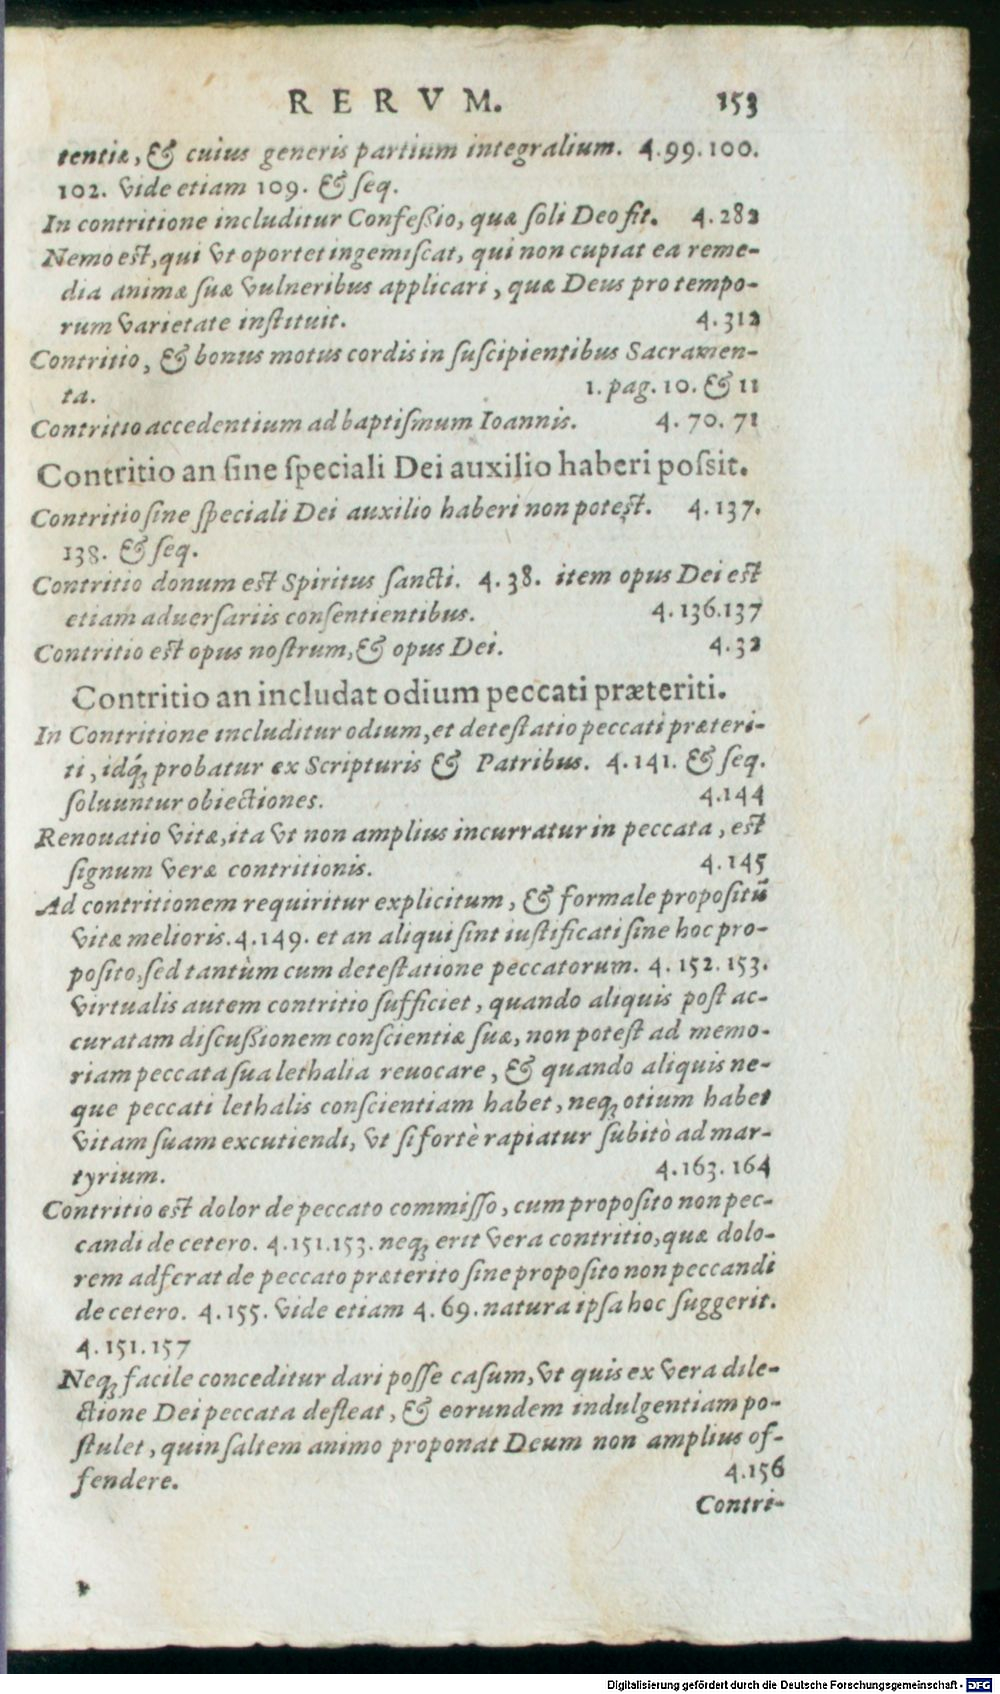 RERVM. 153
tentiæ, & cuius generis partium integralium. 4.99.100.
102. vide etiam 109. & seq.
In contritione includitur Confeßio, quæ soli Deo fit. 4.282
Nemo est, qui vt oportet ingemiscat, qui non cupiat ea reme-
dia animæ suæ vulneribus applicari, quæ Deus pro tempo-
rum varietate instituit. 4.312
Contritio, & bonus motus cordis in suscipientibus Sacramen-
ta. 1. pag. 10. & 11
Contritio accedentium ad baptismum Ioannis. 4. 70. 71
Contritio an sine speciali Dei auxilio haberi possit.
Contritio sine speciali Dei auxilio haberi non potest. 4.137.
138. & seq.
Contritio donum est Spiritus sancti. 4.38. item opus Dei est
etiam aduersariis consentientibus. 4.136.137
Contritio est opus nostrum, & opus Dei. 4.32
Contritio an includat odium peccati præteriti.
In Contritione includitur odium, et detestatio peccati præteri-
ti, idq́; probatur ex Scripturis & Patribus. 4.141. & seq.
soluuntur obiectiones. 4.144
Renouatio vitæ, ita vt non amplius incurratur in peccata, est
signum veræ contritionis. 4.145
Ad contritionem requiritur explicitum, & formale propositū
vitæ melioris. 4.149. et an aliqui sint iustificati sine hoc pro-
posito, sed tantùm cum detestatione peccatorum. 4.152.153.
virtualis autem contritio sufficiet, quando aliquis post ac-
curatam discußionem conscientiæ suæ, non potest ad memo-
riam peccata sua lethalia reuocare, & quando aliquis ne-
que peccati lethalis conscientiam habet, neq; otium habet
vitam suam excutiendi, vt si fortè rapiatur subitò ad mar-
tyrium. 4.163.164
Contritio est dolor de peccato commisso, cum proposito non pec-
candi de cetero. 4.151.153. neq; erit vera contritio, quæ dolo-
rem adferat de peccato præterito sine proposito non peccandi
de cetero. 4.155. vide etiam 4.69. natura ipsa hoc suggerit.
4.151.157
Neq; facile conceditur dari posse casum, vt quis ex vera dile-
ctione Dei peccata defleat, & eorundem indulgentiam po-
stulet, quin saltem animo proponat Deum non amplius of-
fendere. 4.156
Contri-
Digitalisierung gefördert durch die Deutsche Forschungsgemeinschaft - DFG